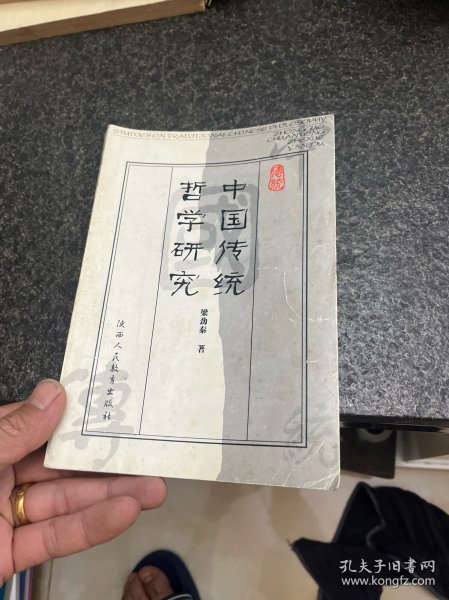 STUDIES ON TRADITIONAL CHINESE PHILOSOPHY
ZHONG GUO
CHUANTONG
ZHEXUE
YANJIU
中国传统
哲学研究
梁劲泰 著
陕西人民教育出版社
國
專
統
孔夫子旧书网
www.kongfz.com